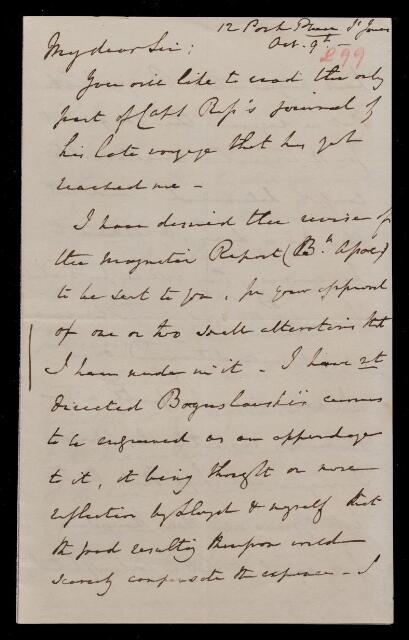 12 Park Place St James
Oct. 9th –
299
My dear Sir:
You will like to read the only
part of Capt Ross's Journal of
his late voyage that has yet
reached me –
I have desired the revise of
the Magnetic Report (Bh Assoc)
to be sent to you, for your approval
of one or two small alterations that
I have made in it – I have not
directed Boguslawski's curves
to be engraved as an appendage
to it, it being thought on more
reflection by Lloyd & myself that
the good resulting thereupon would
scarcely compensate the expence – I